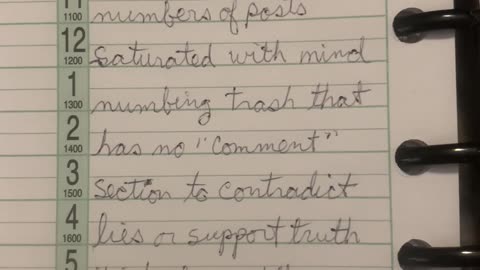 11 numbers of posts
1100
12 saturated with mind
1200
1 numbing trash that
1300
2 has no "comment"
1400
3 section to contradict
1500
4 lies or support truth
1600
5